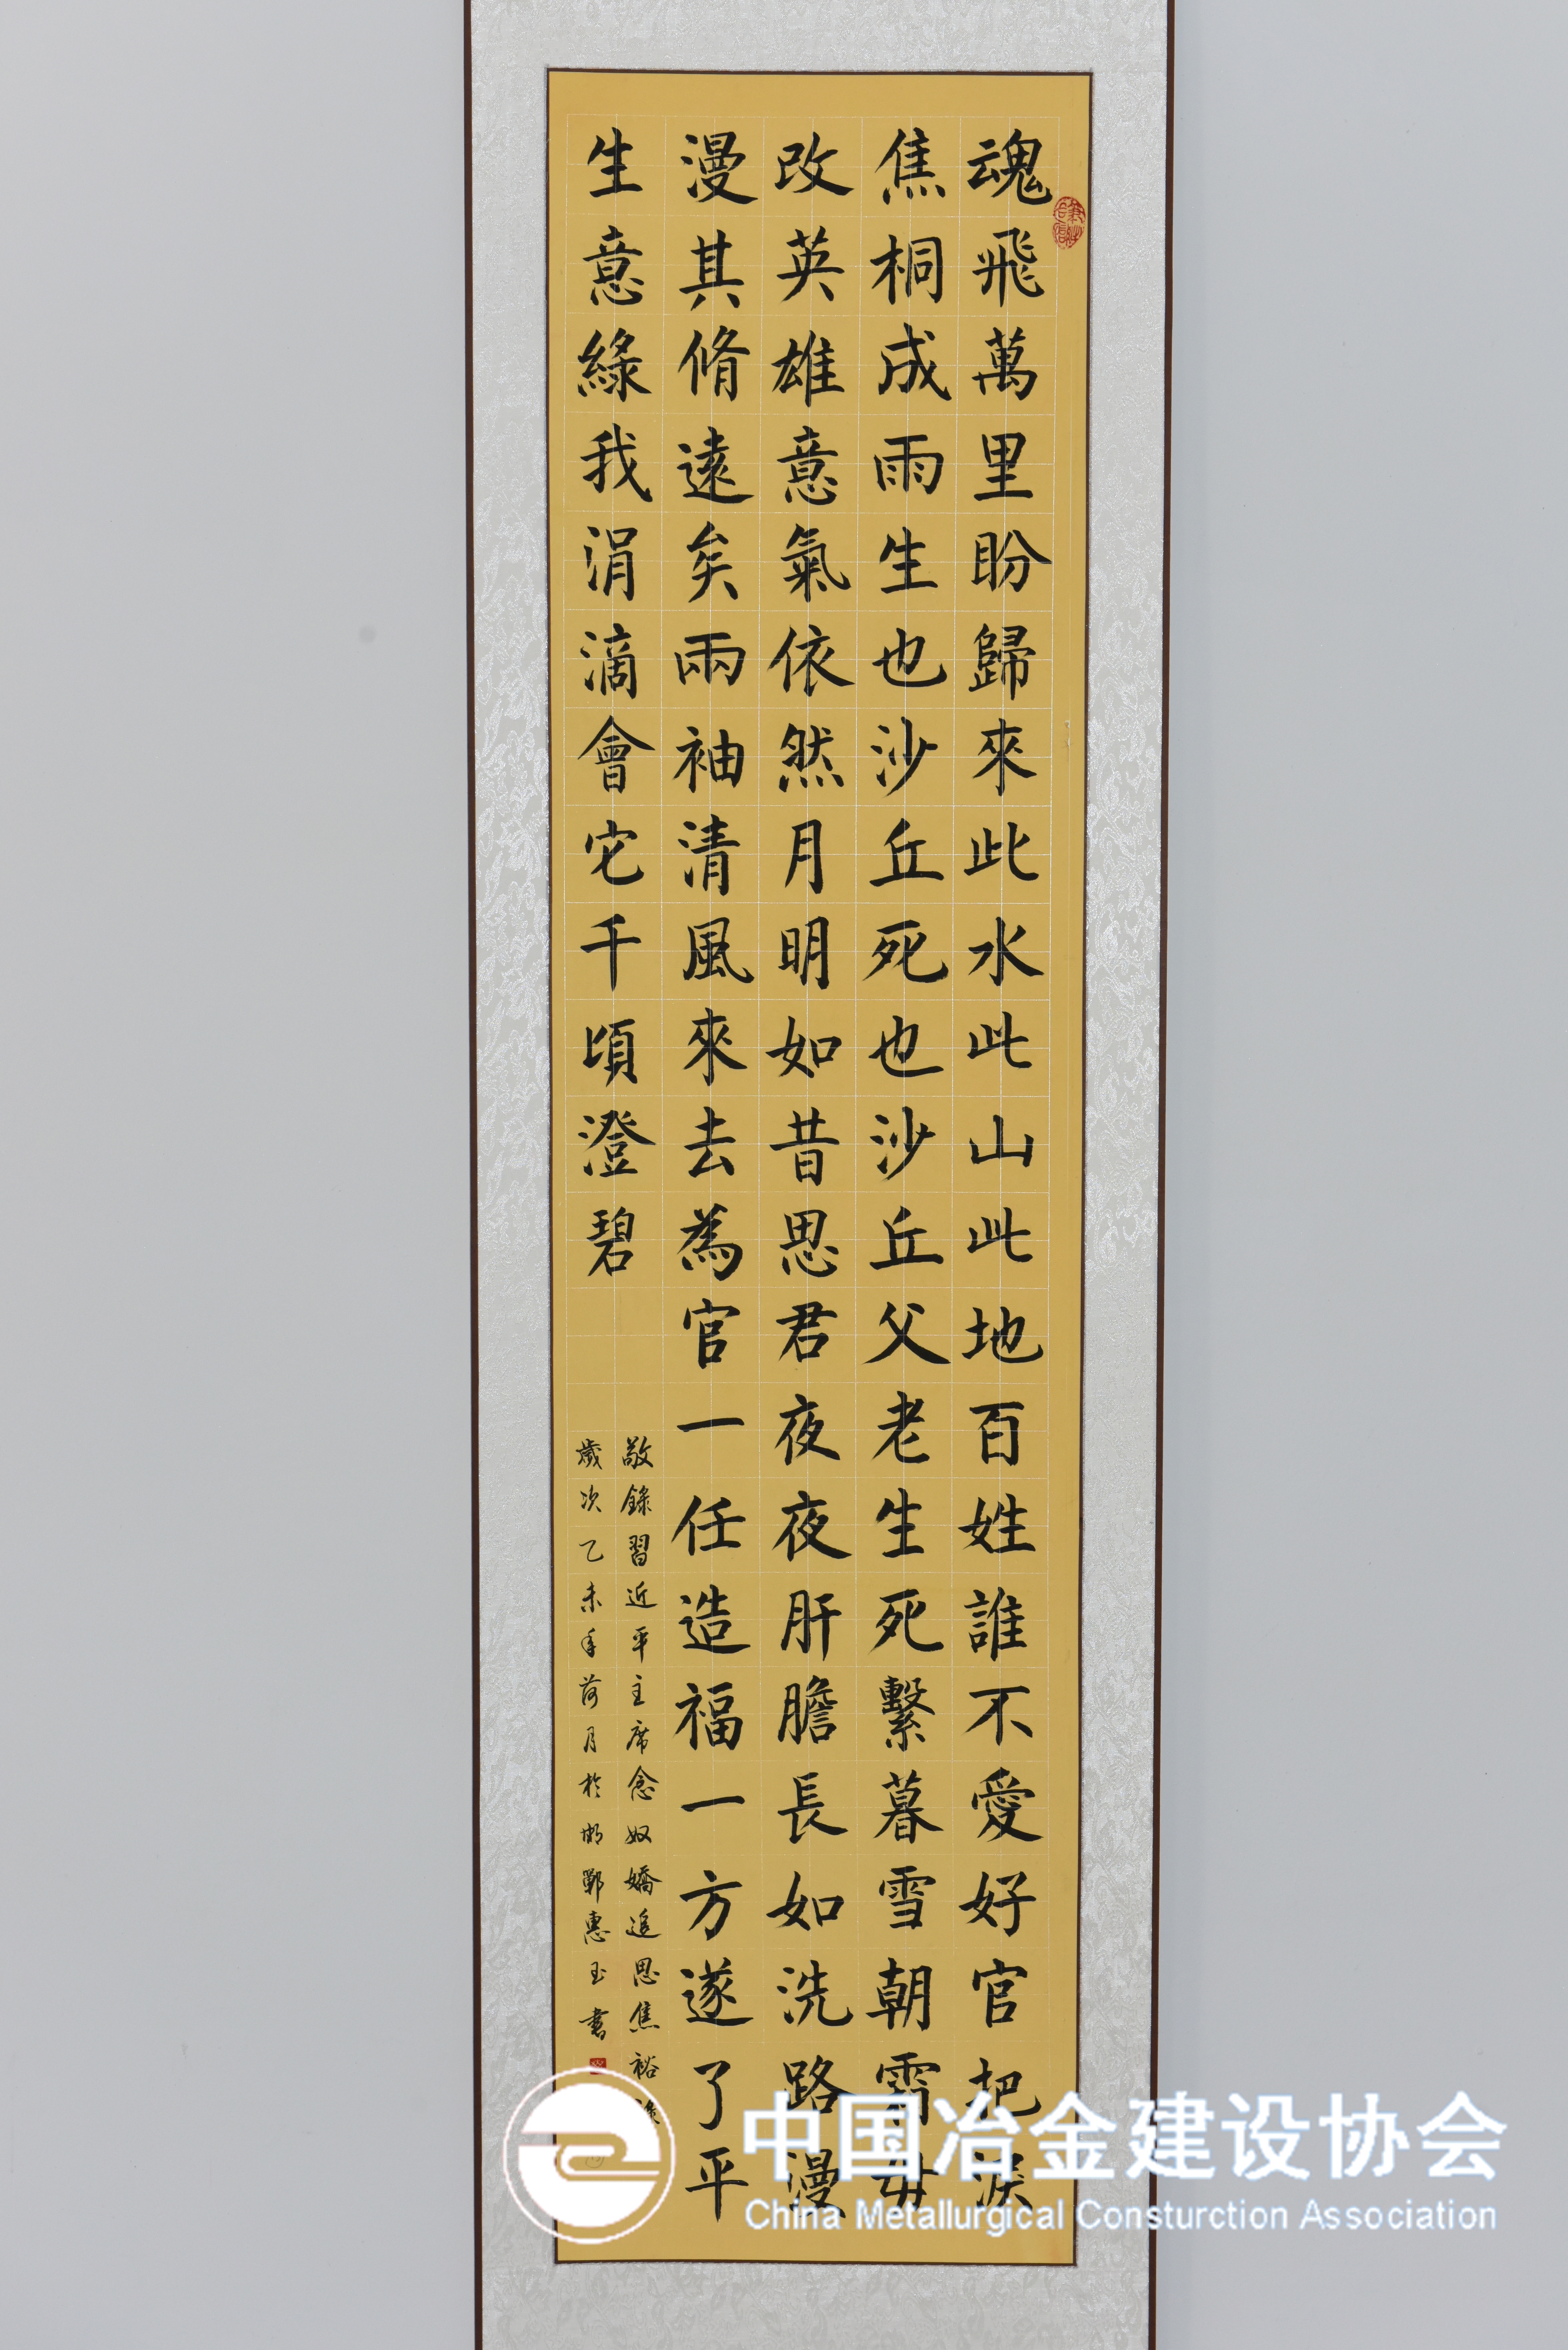 魂飛萬里盼歸來此水此山此地百姓誰不愛好官把淚
焦桐成雨生也沙丘死也沙丘父老生死繫暮雪朝霜毋
改英雄意氣依然月明如昔思君夜夜肝膽長如洗路漫
漫其脩遠矣兩袖清風來去為官一任造福一方遂了平
生意綠我涓滴會它千頃澄碧
敬錄習近平主席念奴嬌追思焦裕
歲次乙未年荷月於邯鄲惠玉書
中国冶金建设协会
China Metallurgical Consturction Association